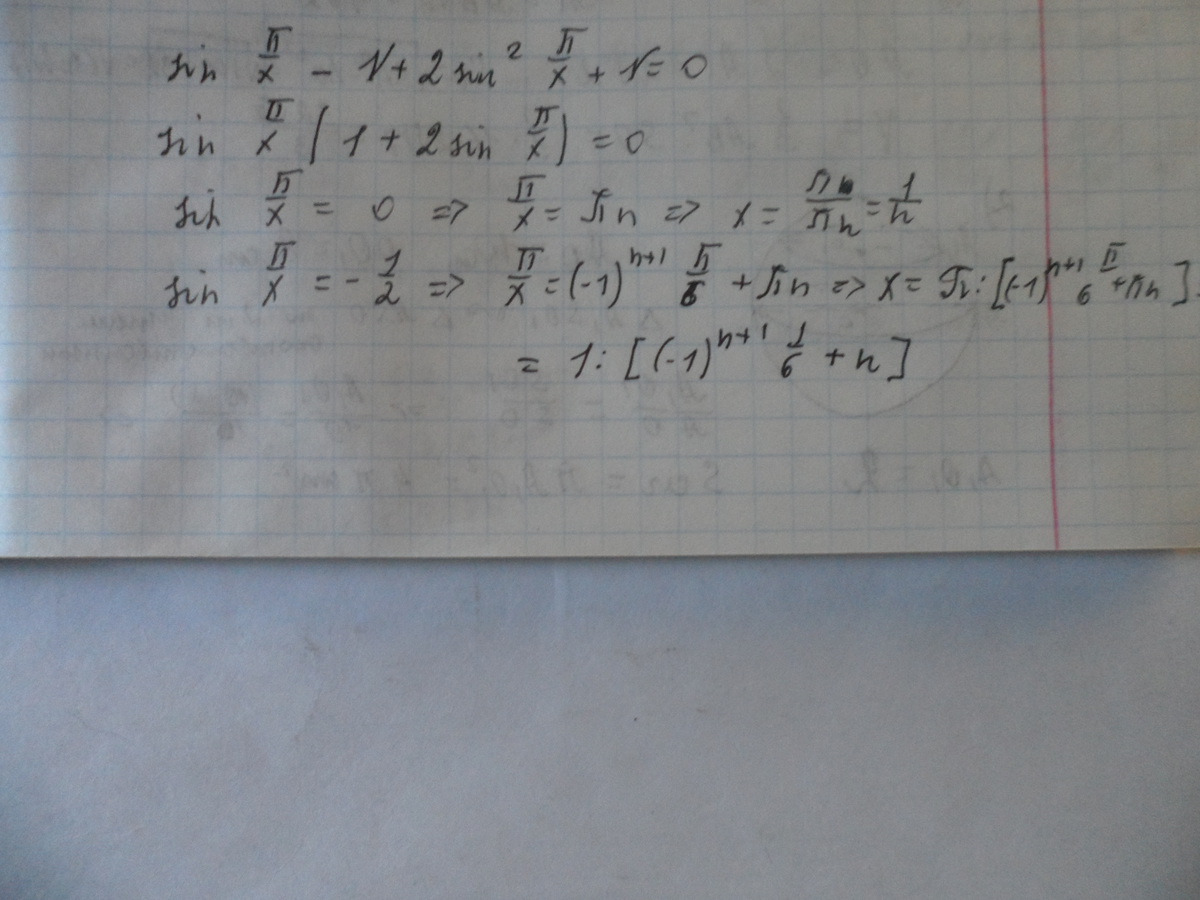 sin π/x - 1 + 2 sin² π/x + 1 = 0
sin π/x (1 + 2 sin π/x) = 0
sin π/x = 0 => π/x = πn => x = π/πn = 1/n
sin π/x = -1/2 => π/x = (-1)ⁿ⁺¹ π/6 + πn => x = π : [(-1)ⁿ⁺¹ π/6 + πn] =
= 1 : [(-1)ⁿ⁺¹ 1/6 + n]